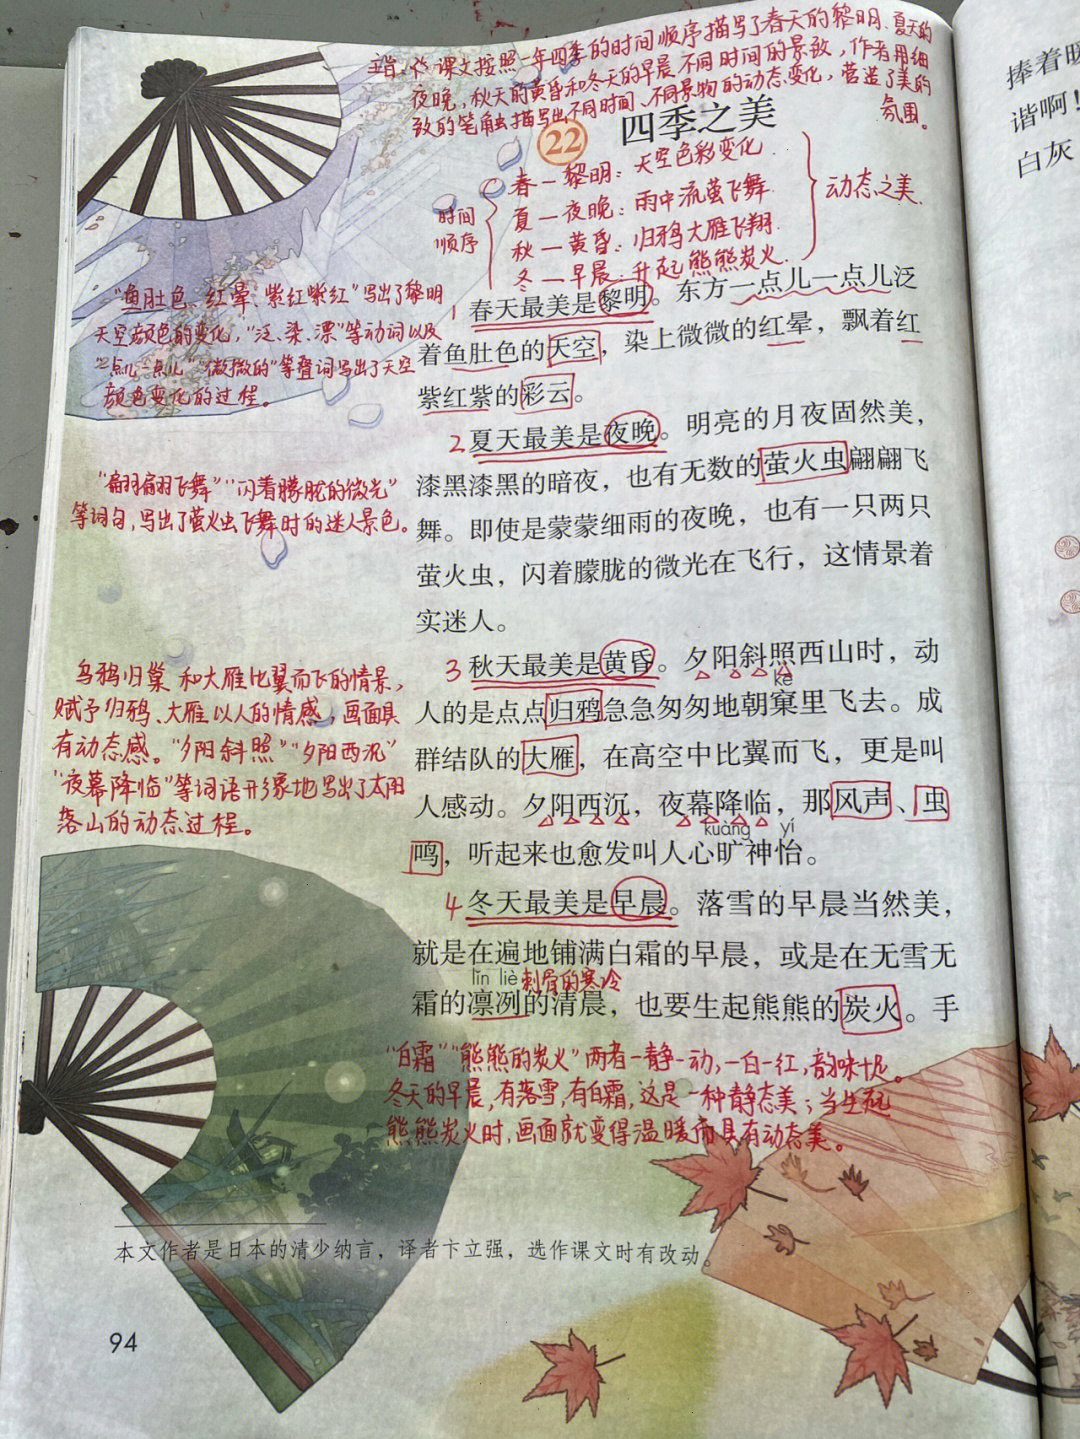 主旨:课文按照一年四季的时间顺序描写了春天的黎明、夏天的
夜晚,秋天的黄昏和冬天的早晨不同时间的景致,作者用细
致的笔触描写出不同时间、不同景物的动态变化,营造了美的
氛围。
22 四季之美
时间
顺序
春—黎明:天空色彩变化
夏—夜晚:雨中流萤飞舞
秋—黄昏:归鸦大雁飞翔
冬—早晨:升起熊熊炭火
动态之美
1 春天最美是黎明。东方一点儿一点儿泛
着鱼肚色的天空,染上微微的红晕,飘着红
紫红紫的彩云。
“鱼肚色、红晕、紫红紫红”写出了黎明
天空颜色的变化,“泛、染、漂”等动词以及
“一点儿一点儿”“微微的”等叠词写出了天空
颜色变化的过程。
2 夏天最美是夜晚。明亮的月夜固然美,
漆黑漆黑的暗夜,也有无数的萤火虫翩翩飞
舞。即使是蒙蒙细雨的夜晚,也有一只两只
萤火虫,闪着朦胧的微光在飞行,这情景着
实迷人。
“翩翩飞舞”“闪着朦胧的微光”
等词句,写出了萤火虫飞舞时的迷人景色。
3 秋天最美是黄昏。夕阳斜照西山时,动
kē
人的是点点归鸦急急匆匆地朝窠里飞去。成
群结队的大雁,在高空中比翼而飞,更是叫
人感动。夕阳西沉,夜幕降临,那风声、虫
kuàng yí
鸣,听起来也愈发叫人心旷神怡。
乌鸦归巢和大雁比翼而飞的情景,
赋予归鸦、大雁以人的情感,画面具
有动态感。“夕阳斜照”“夕阳西沉”
“夜幕降临”等词语形象地写出了太阳
落山的动态过程。
4 冬天最美是早晨。落雪的早晨当然美,
就是在遍地铺满白霜的早晨,或是在无雪无
lǐn liè 刺骨的寒冷
霜的凛冽的清晨,也要生起熊熊的炭火。手
“白霜”“熊熊的炭火”两者一静一动,一白一红,韵味十足。
冬天的早晨,有落雪,有白霜,这是一种静态美;当生起
熊熊炭火时,画面就变得温暖而具有动态美。
本文作者是日本的清少纳言,译者卞立强,选作课文时有改动。
94
捧着暖
谐啊!
白灰